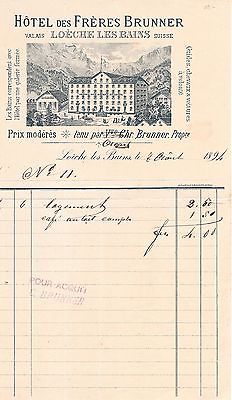 HÔTEL DES FRÈRES BRUNNER
VALAIS LOÈCHE LES BAINS SUISSE
Les bains correspondent avec
l'Hôtel par une galerie fermée
Guides, chevaux, voitures
à volonté
Prix modérés tenu par Vve Chr. Brunner, Propre
Loèche les Bains le 2 Août 1894
No 11.
6 logement 2.50
café au lait complet 1.50
frs 4.00
POUR ACQUIT
BRUNNER